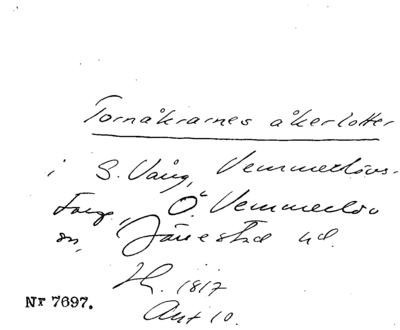 Tornåkrarnes åkerlotter
i S. Vång, Vemmerlövs-
torp, Ö. Vemmerlöv
sn, Järrestad hd.
H. 1817
Akt 10.
Nr 7697.